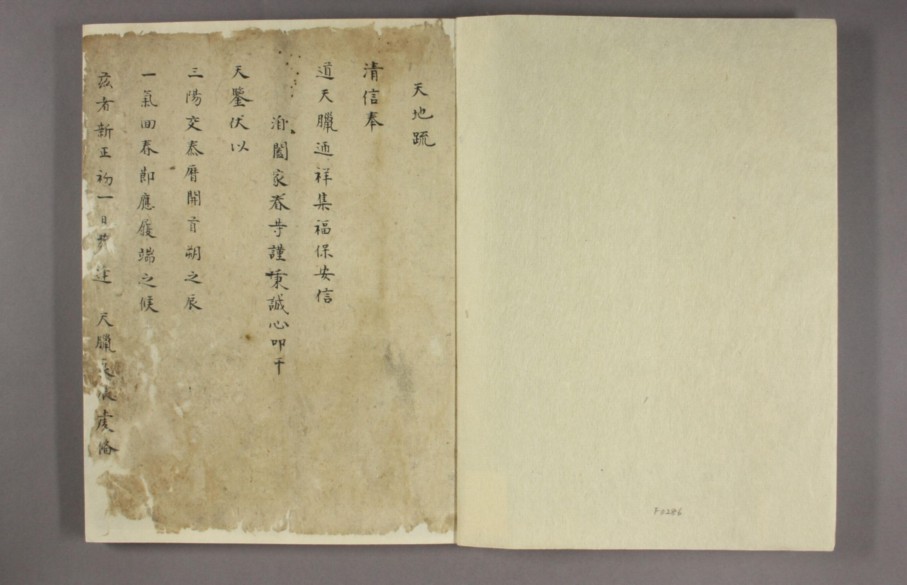 天地疏
清信奉
道天臘迊祥集福保安信
洎闔家眷等謹秉誠心叩干
天鑒伏以
三陽交泰曆開首朔之辰
一氣回春即應履端之候
茲者新正初一日 逢 天臘